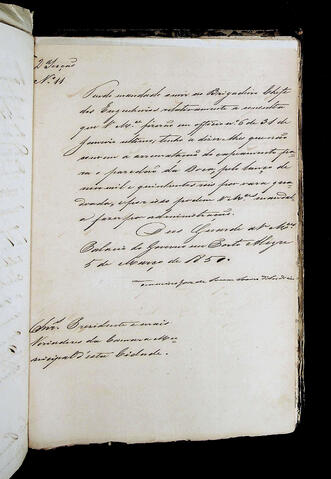 2ª Secção
N.º 11
Tendo mandado ouvir ao Brigadeiro Chefe
dos Engenheiros relativamente a consulta
que V. M.ces fizerão em officio n.º 6 de 31 de
Janeiro ultimo, tenho a dizer-lhes que não
convem a arrematação do capeamento para
o paredão da Doca pelo lanço de
nove mil e quinhentos reis por vara qua
drada, e por isso podem V. M.ces mandal-
o fazer por administração.
Deos Guarde a V. M.ces
Palacio do Governo em Porto Alegre
5 de Março de 1850.
Francisco José de Souza Soares d'Andréa
Snr.es Presidente e mais
Vereadores da Camara Mu
nicipal d'esta Cidade.